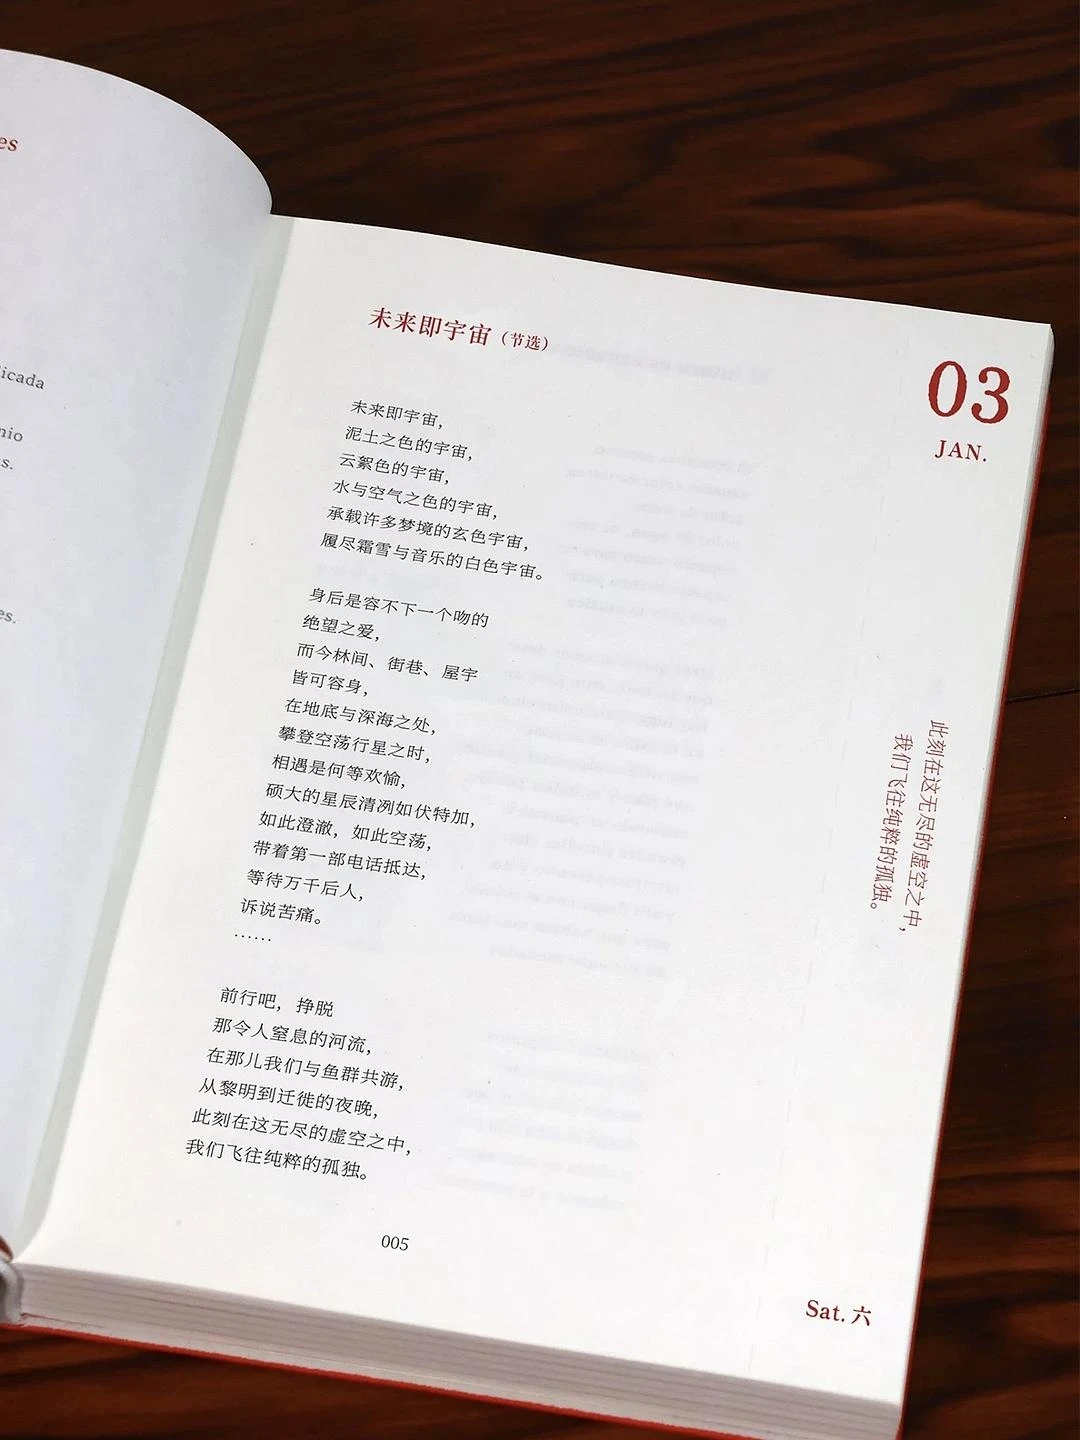 es
icada
nio
s.
es.
未来即宇宙（节选）
03
JAN.
未来即宇宙，
泥土之色的宇宙，
云絮色的宇宙，
水与空气之色的宇宙，
承载许多梦境的玄色宇宙，
履尽霜雪与音乐的白色宇宙。
身后是容不下一个吻的
绝望之爱，
而今林间、街巷、屋宇
皆可容身，
在地底与深海之处，
攀登空荡行星之时，
相遇是何等欢愉，
硕大的星辰清冽如伏特加，
如此澄澈，如此空荡，
带着第一部电话抵达，
等待万千后人，
诉说苦痛。
……
前行吧，挣脱
那令人窒息的河流，
在那儿我们与鱼群共游，
从黎明到迁徙的夜晚，
此刻在这无尽的虚空之中，
我们飞往纯粹的孤独。
此刻在这无尽的虚空之中，
我们飞往纯粹的孤独。
005
Sat. 六